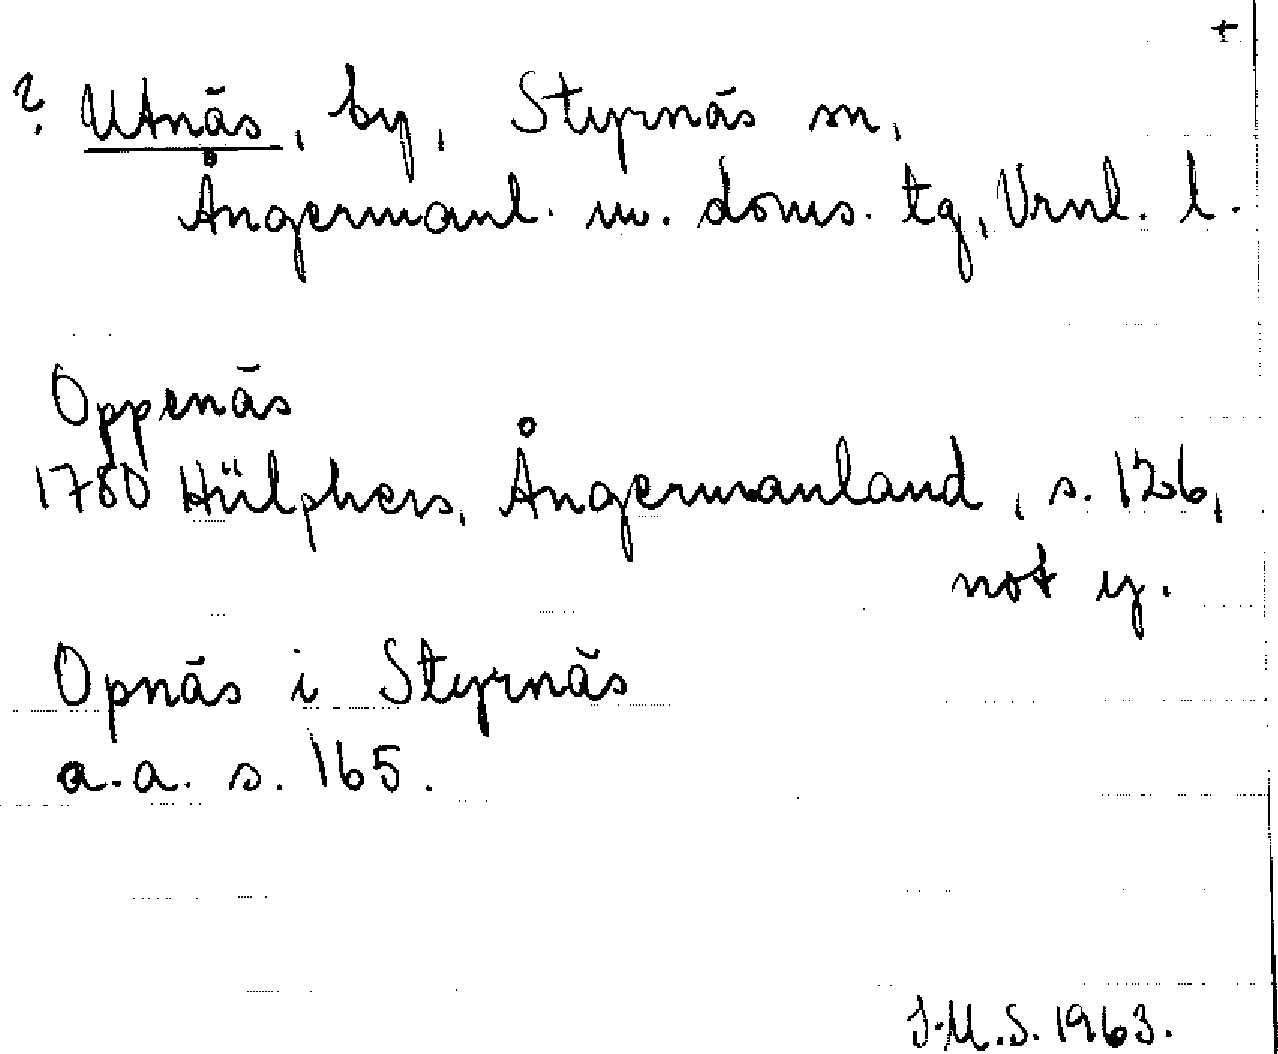 +
? Utnäs, by, Styrnäs sn,
Ångermanl. m. doms. tg, Vrnl. l.
Oppenäs
1780 Hülphers, Ångermanland, s. 126,
not y.
Opnäs i Styrnäs
a.a. s. 165.
I.M.S. 1963.